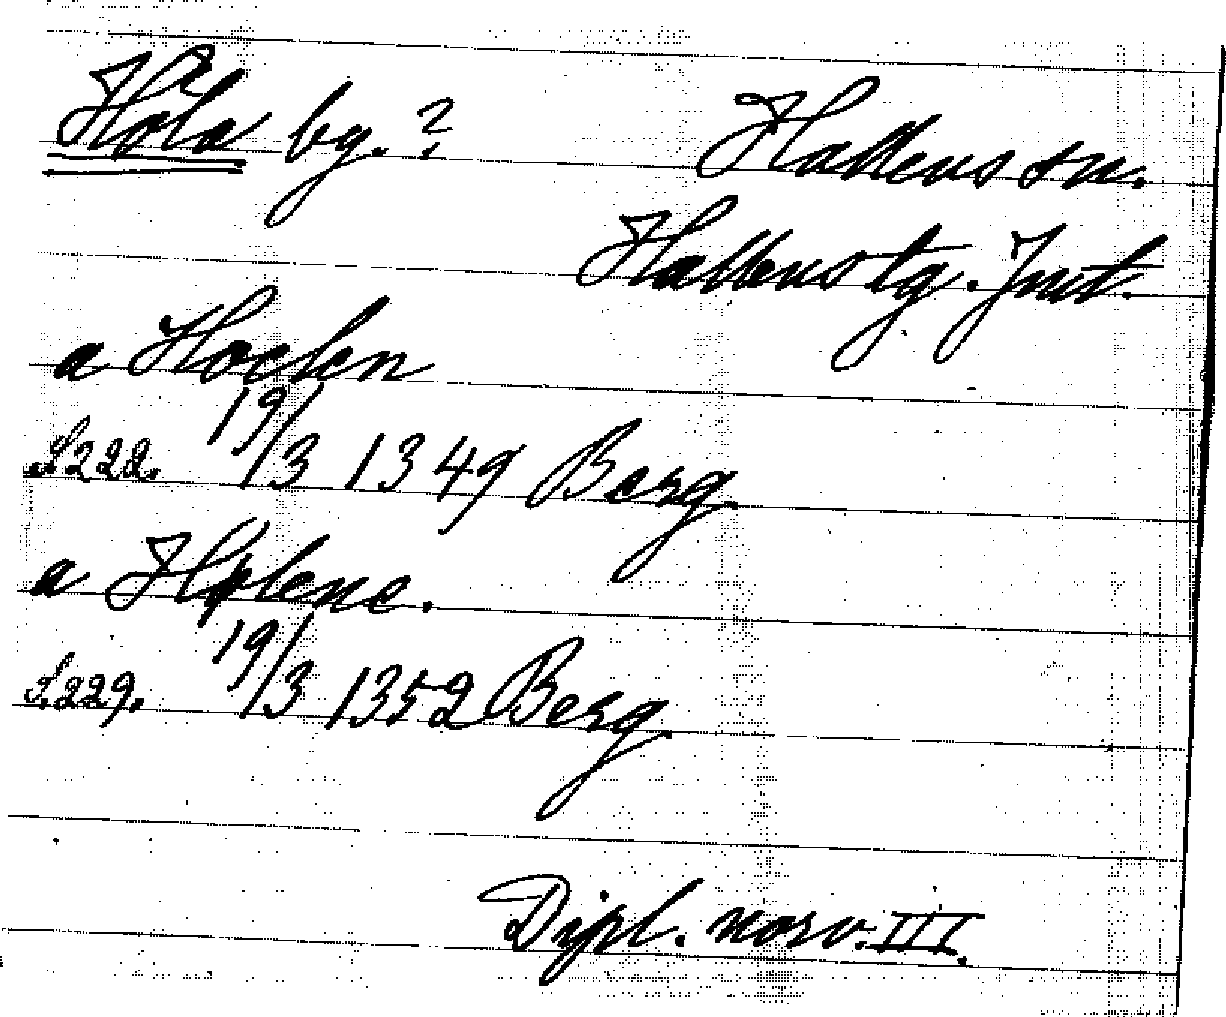 Håla bg. ? Hallens sn.
Hallens tg. Jmt.
a Hoolen
S. 222. 19/3 1349 Berg
a Hølene.
S. 229. 19/3 1352 Berg
Dipl. norv. III.